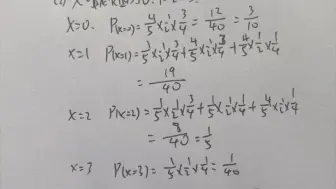 X=0. P(x=0) = 4/5 × 1/2 × 3/4 = 12/40 = 3/10
X=1 P(x=1) = 1/5 × 1/2 × 3/4 + 4/5 × 1/2 × 3/4 + 4/5 × 1/2 × 1/4
= 19/40
X=2 P(x=2) = 1/5 × 1/2 × 3/4 + 1/5 × 1/2 × 1/4 + 4/5 × 1/2 × 1/4
= 8/40 = 1/5
X=3 P(x=3) = 1/5 × 1/2 × 1/4 = 1/40